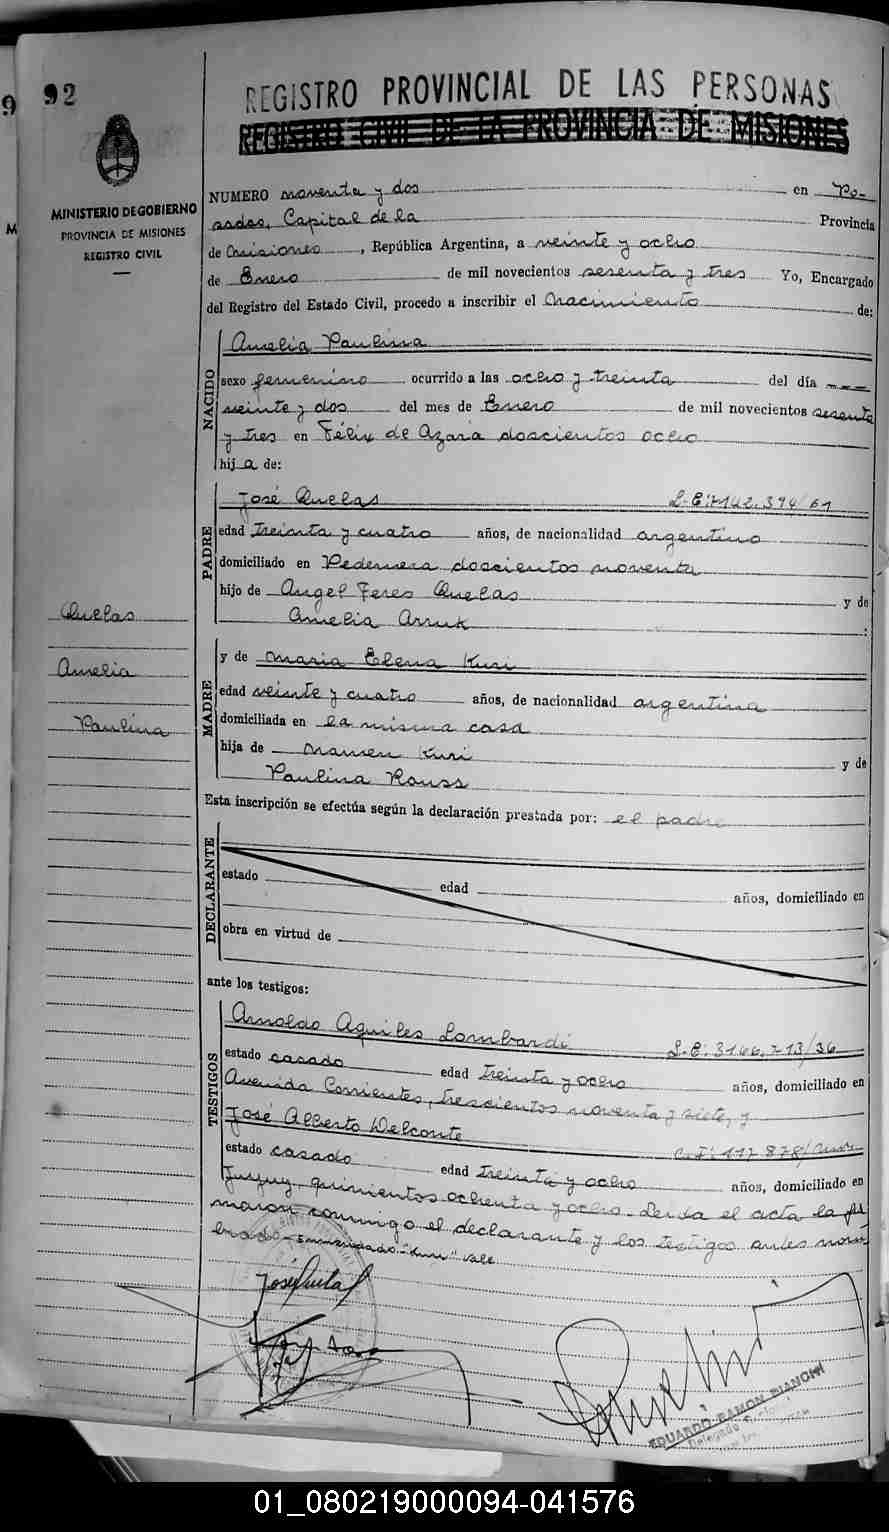 92
REGISTRO PROVINCIAL DE LAS PERSONAS
REGISTRO CIVIL DE LA PROVINCIA DE MISIONES
MINISTERIO DE GOBIERNO
PROVINCIA DE MISIONES
REGISTRO CIVIL
NUMERO noventa y dos en Po-
sadas, Capital de la Provincia
de Misiones, República Argentina, a veinte y ocho
de Enero de mil novecientos sesenta y tres Yo, Encargado
del Registro del Estado Civil, procedo a inscribir el Nacimiento de:
NACIDO
Amelia Paulina
sexo femenino ocurrido a las ocho y treinta del día
veinte y dos del mes de Enero de mil novecientos sesenta
y tres en Félix de Azara doscientos ocho
hija de:
PADRE
José Quelas L-E: 7142.394/61
edad treinta y cuatro años, de nacionalidad argentino
domiciliado en Pedernera doscientos noventa
hijo de Angel Feres Quelas y de
Amelia Arruk :
Quelas
Amelia
Paulina
MADRE
y de Maria Elena Kuri
edad veinte y cuatro años, de nacionalidad argentina
domiciliada en la misma casa
hija de Kuri y de
Paulina Rouss
Esta inscripción se efectúa según la declaración prestada por: el padre
DECLARANTE
estado edad años, domiciliado en
obra en virtud de
ante los testigos:
TESTIGOS
Arnoldo Aquiles Lombardi L-E: 3146.713/36
estado casado edad treinta y ocho años, domiciliado en
Avenida Corrientes, trescientos noventa y siete, y
José Alberto Delconte C.I: 117 878/
estado casado edad treinta y ocho años, domiciliado en
Jujuy quinientos ochenta y ocho. Leida el acta la fir
maron conmigo el declarante y los testigos antes nom
brado- Enmendado-"Kuri" vale
José Quelas
EDUARDO RAMON BIANCHI
Delegado
01_080219000094-041576